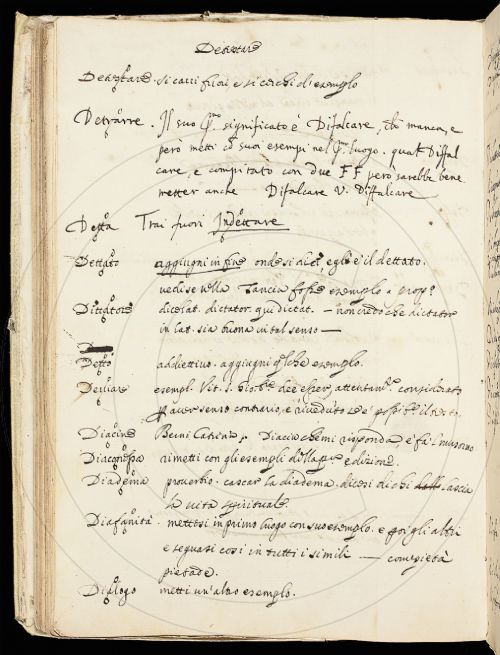 Detrattare
Detrattare. si cavi fuori e si cerchi d'esempio
Detrarre. Il suo pº. significato è Difalcare, chè manca, e
però metti co suoi esempi nel pº. luogo. qual Diffal
care, e compitato con due FF però sarebbe bene
metter anche Difalcare V. Diffalcare
Detta Trai fuori Indettare
Dettato aggiugni in fine onde si dice, egli è il dettato.
vedi se nella Tancia fosse esempio a
Dittatore dicesi at. dictator. qui dictat. - non credo che dictator
in lat. sia buona in tal senso —
D
Detto addiettivo. aggiugni qlche esempio.
Deviare esempl. Vit. S. Gio: dee esser, attentam.te considerato
aver senso contrario, e riveduto se è possibil il testo.
Diacine Berni Catrina. Diacin che mi risponda, e fa l'
rimetti con gli esempli della edizione.
Diadema proverbio. cascar la diadema. dicesi di chi lascia
la vita spirituale.
Diafanità. mettesi in primo luogo con suo esemplo. e poi gli altri
e seguasi così in tutti i simili — come pietà
pietade.
Dialogo metti un'altro esemplo.